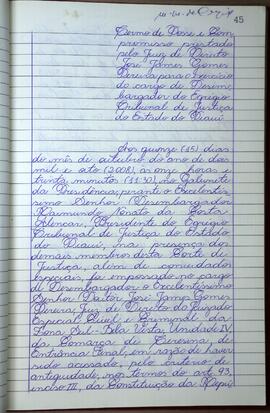 45
Termo de Posse e Com
promisso prestado
pelo Juiz de Direito
José James Gomes
Pereira para o exercício
do cargo de Desem
bargador do Egrégio
Tribunal de Justiça
do Estado do Piauí
Aos quinze (15) dias
do mês de outubro do ano de dois
mil e oito (2008), as onze horas e
trinta minutos (11:30), no Gabinete
da Presidência, perante o Excelentís
simo Senhor Desembargador
Raimundo Nonato da Costa
Alencar, Presidente do Egrégio
Tribunal de Justiça do Estado
do Piauí, na presença dos
demais membros desta Corte de
Justiça, além de convidados
especiais, foi empossado no cargo
de Desembargador o Excelentíssimo
Senhor Doutor José James Gomes
Pereira, Juiz de Direito do Juizado
Especial Cível e Criminal da
Zona Sul - Bela Vista, Unidade IV,
da Comarca de Teresina, de
Entrância Final, em razão de haver
sido acessado, pelo critério de
antiguidade, nos termos do art. 93,
inciso III, da Constituição da Repú